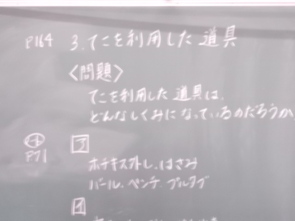 P164 3. てこを利用した道具
〈問題〉
てこを利用した道具は、
どんなしくみになっているのだろうか
P71
ア
ホチキス、はさみ
バール、ペンチ、プルタブ
イ